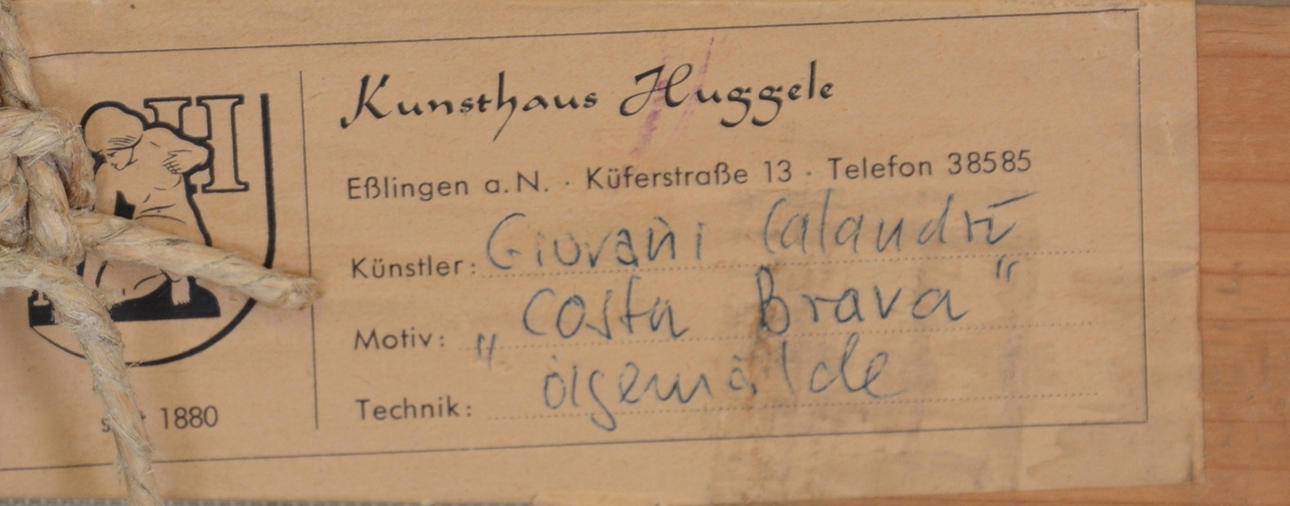 Kunsthaus Huggele
Eßlingen a. N. · Küferstraße 13 · Telefon 38585
Künstler: Giovani Calandri
Motiv: „Costa Brava“
Technik: ölgemälde
1880